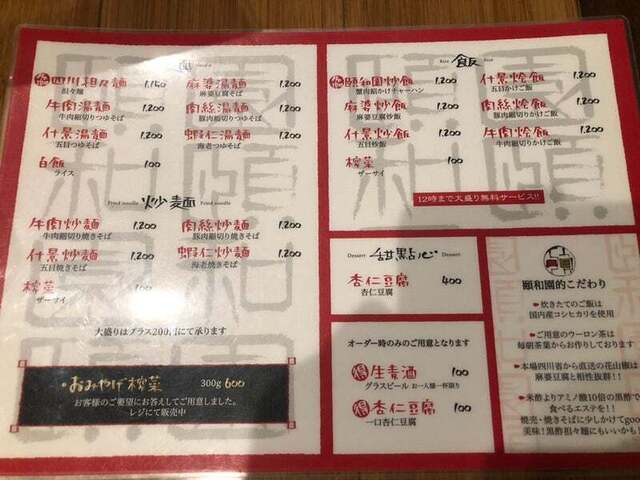 麺 Noodle
四川担々麺 1,150
担々麺
牛肉湯麺 1,200
牛肉細切りつゆそば
什景湯麺 1,200
五目つゆそば
白飯 100
ライス
麻婆湯麺 1,200
麻婆豆腐そば
肉絲湯麺 1,200
豚肉細切りつゆそば
蝦仁湯麺 1,200
海老つゆそば
Fried noodle 炒麺 Fried noodle
牛肉炒麺 1,200
牛肉細切り焼きそば
什景炒麺 1,200
五目焼きそば
搾菜 100
ザーサイ
肉絲炒麺 1,200
豚肉細切り焼きそば
蝦仁炒麺 1,200
海老焼きそば
大盛りはプラス200円にて承ります
おみやげ搾菜 300g 600
お客様のご要望にお答えしてご用意しました。
レジにて販売中
Rice 飯 Rice
頤和園炒飯 1,200
蟹肉餡かけチャーハン
麻婆炒飯 1,200
麻婆豆腐炒飯
什景炒飯 1,200
五目炒飯
搾菜 100
ザーサイ
什景烩飯 1,200
五目かけご飯
肉絲烩飯 1,200
豚肉細切りかけご飯
牛肉烩飯 1,200
牛肉細切りかけご飯
12時まで大盛り無料サービス!!
Dessert 甜點心 Dessert
杏仁豆腐 400
杏仁豆腐
オーダー時のみのご用意となります
得 生麦酒 100
グラスビール お一人様一杯限り
得 杏仁豆腐 100
一口杏仁豆腐
頤和園的こだわり
炊きたてのご飯は
国内産コシヒカリを使用
ご用意のウーロン茶は
毎朝茶葉からお作りしています。
本場四川省から直送の花山椒は
麻婆豆腐と相性抜群!!
米酢よりアミノ酸10倍の黒酢で
食べるエステを!!
焼売・焼きそばに少しかけてgoo
美味!黒酢担々麺にもいいかも!